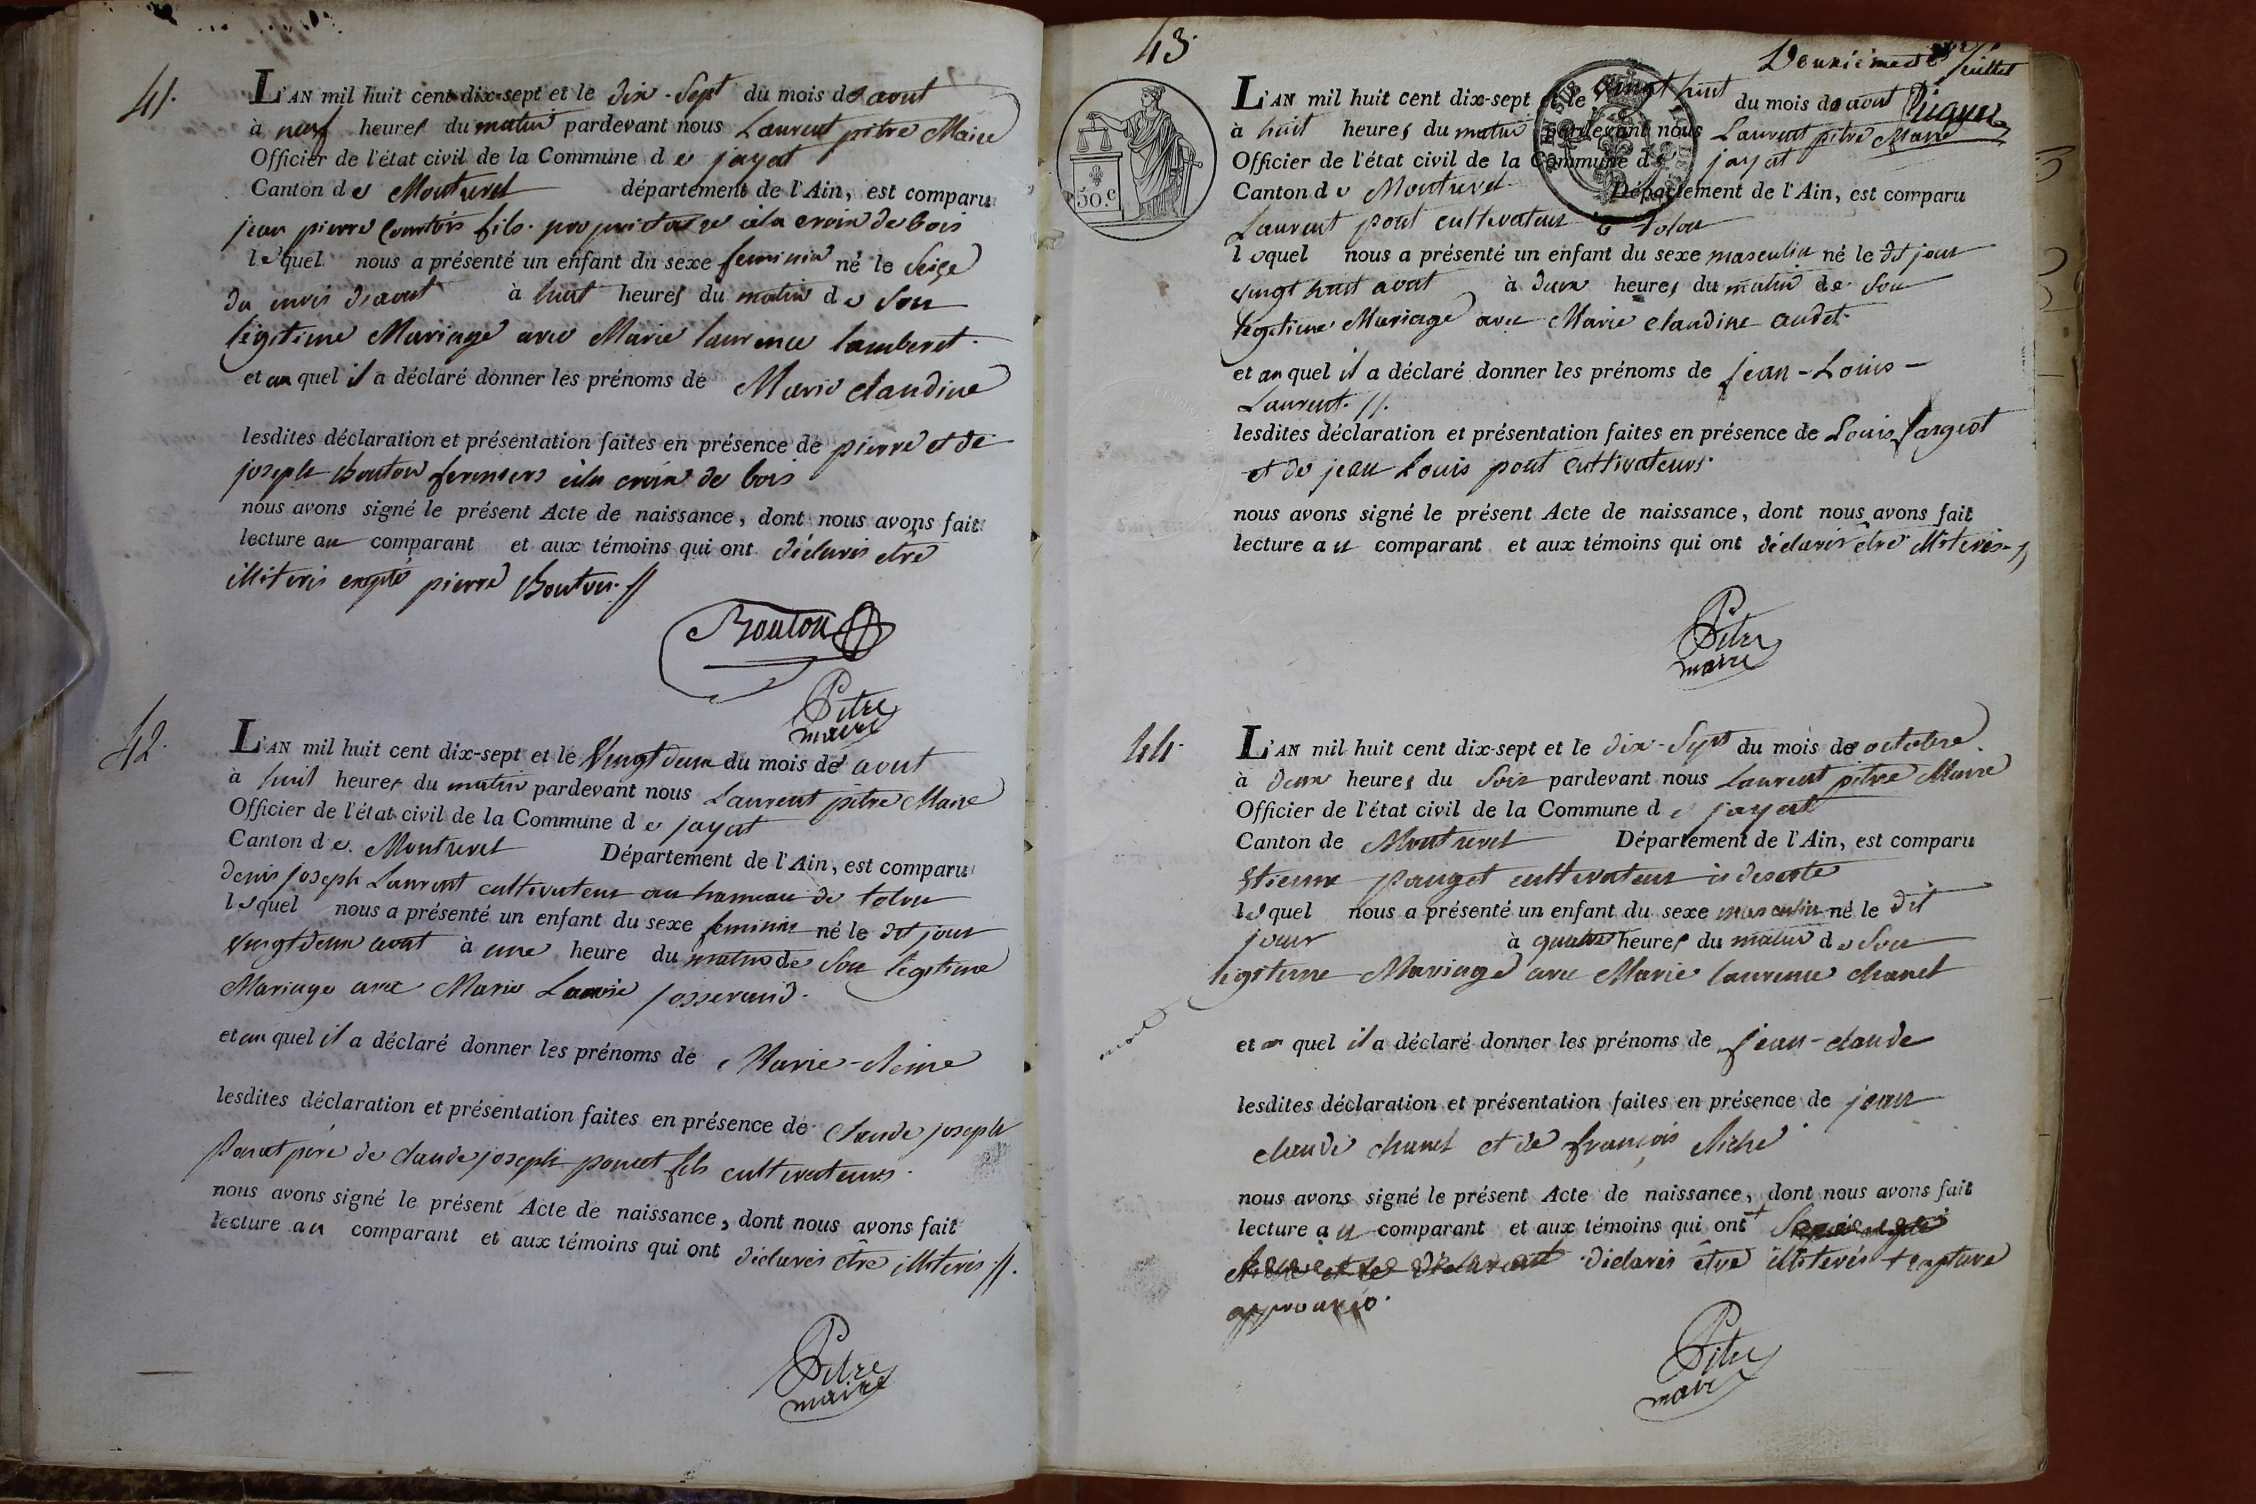 41.
L'AN mil huit cent dix-sept et le dix-sept du mois de aout
à neuf heures du matin pardevant nous Laurent pitre Maire
Officier de l'état civil de la Commune de jayat
Canton de Montrevel département de l'Ain, est comparu
jean pierre Comtois fils proprietaire à la croix de bois
lequel nous a présenté un enfant du sexe feminin né le seize
du mois de aout à huit heures du matin de son
légitime Mariage avec Marie laurence lamberet
et au quel il a déclaré donner les prénoms de Marie claudine
lesdites déclaration et présentation faites en présence de pierre et de
joseph Bouton fermiers à la croix de bois
nous avons signé le présent Acte de naissance, dont nous avons fait
lecture au comparant et aux témoins qui ont déclarés etre
illiteris excepté pierre Bouton.//
Bouton
Pitre
maire
42.
L'AN mil huit cent dix-sept et le Vingt deux du mois de aout
à huit heures du matin pardevant nous Laurent pitre Maire
Officier de l'état civil de la Commune de jayat
Canton de Montrevel Département de l'Ain, est comparu
denis joseph Laurent cultivateur au hameau de tolou
lequel nous a présenté un enfant du sexe feminin né le dit jour
vingt deux aout à une heure du matin de son légitime
Mariage avec Marie Louise josserand.
et au quel il a déclaré donner les prénoms de Marie-
lesdites déclaration et présentation faites en présence de claude joseph
Poncet père de claude joseph poncet fils cultivateurs.
nous avons signé le présent Acte de naissance, dont nous avons fait
lecture au comparant et aux témoins qui ont déclarés être illiterés.//.
Pitre
maire
43.
Deuxieme feuillet
50.c
L'AN mil huit cent dix-sept et le vingt huit du mois de aout
à huit heures du matin pardevant nous Laurent pitre Maire
Officier de l'état civil de la Commune de jayat
Canton de Montrevel Département de l'Ain, est comparu
Laurent pont cultivateur à tolou
lequel nous a présenté un enfant du sexe masculin né le dit jour
vingt huit aout à deux heures du matin de son
légitime Mariage avec Marie claudine audet
et au quel il a déclaré donner les prénoms de jean-Louis-
Laurent.//.
lesdites déclaration et présentation faites en présence de Louis
et de jean Louis pont cultivateurs.
nous avons signé le présent Acte de naissance, dont nous avons fait
lecture au comparant et aux témoins qui ont déclarés être illiterés.//
Pitre
maire
44.
L'AN mil huit cent dix-sept et le dix-Sept du mois de octobre
à deux heures du Soir pardevant nous Laurent pitre Maire
Officier de l'état civil de la Commune de jayat
Canton de Montrevel Département de l'Ain, est comparu
Etienne pauget cultivateur à deserte
lequel nous a présenté un enfant du sexe masculin né le dit
jour à quatre heures du matin de son
légitime Mariage avec Marie laurence chanel
mort
et au quel il a déclaré donner les prénoms de jean-claude
lesdites déclaration et présentation faites en présence de jean
claude chanel et de françois
nous avons signé le présent Acte de naissance, dont nous avons fait
lecture au comparant et aux témoins qui ont+
déclarés être illiterés + rapture
approuvée.
Pitre
maire